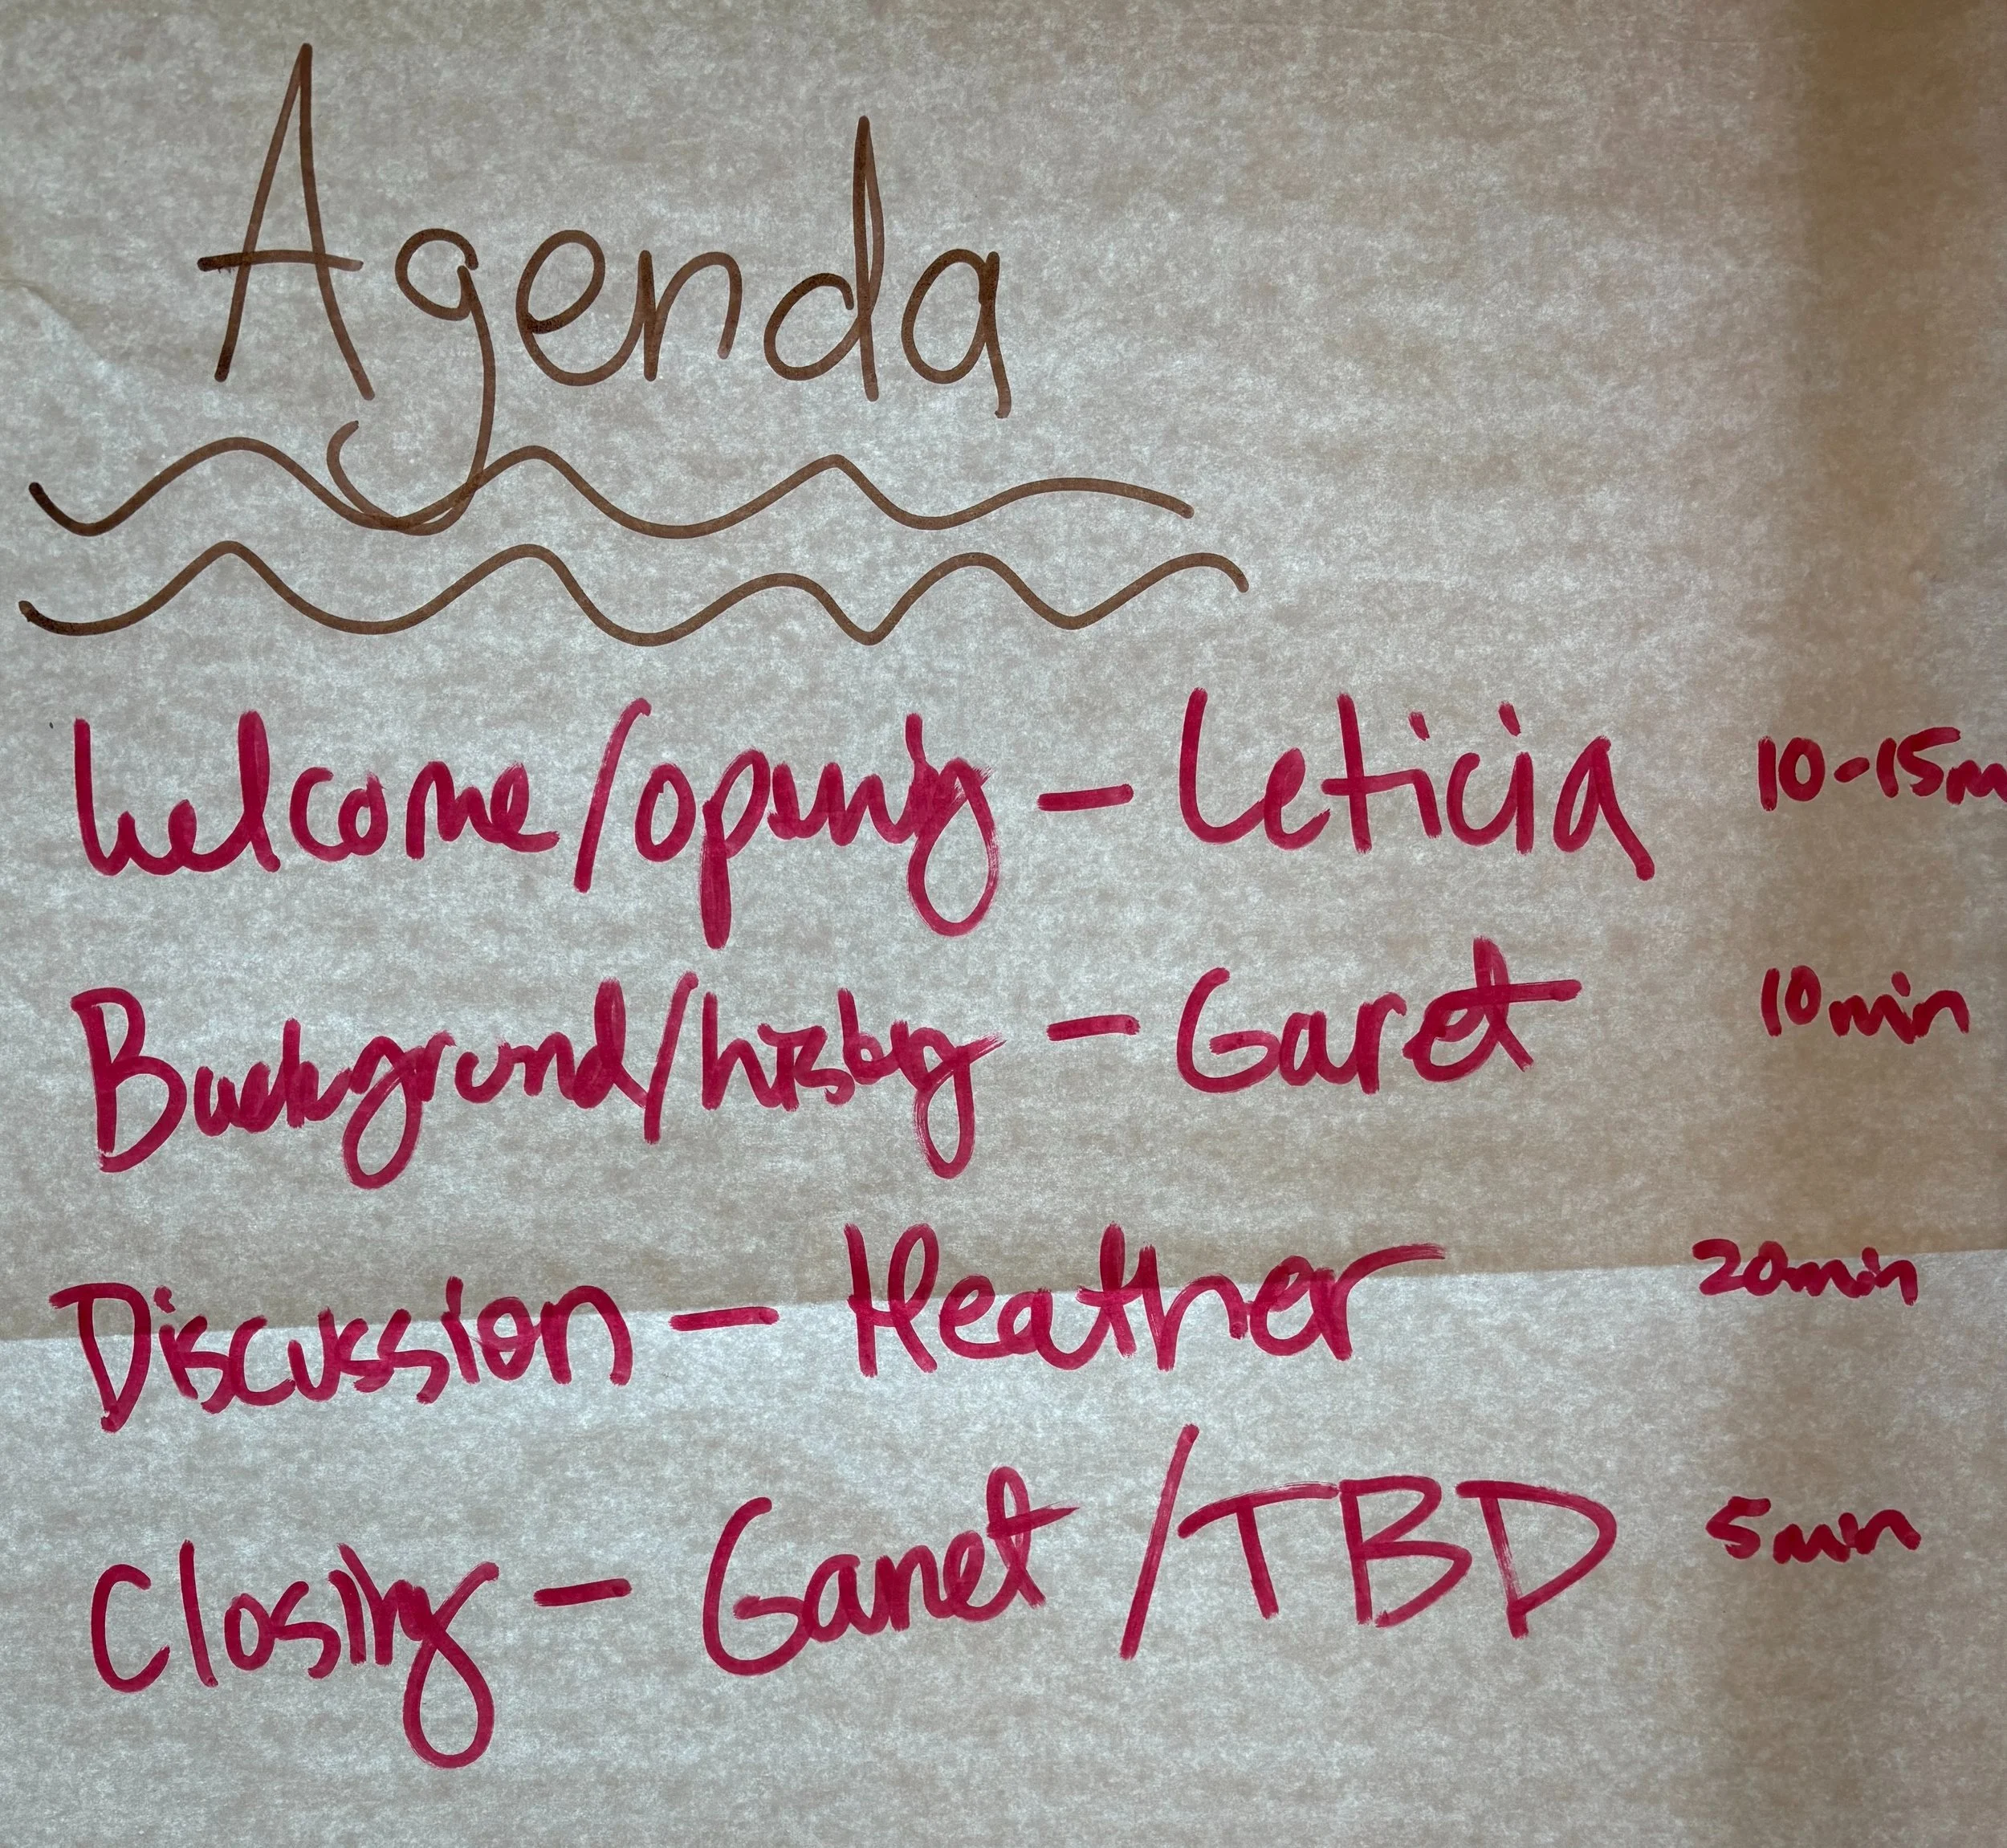 Agenda
Welcome/opening - Leticia 10-15m
Background/history - Garet 10min
Discussion - Heather 20min
Closing - Garret /TBD 5min